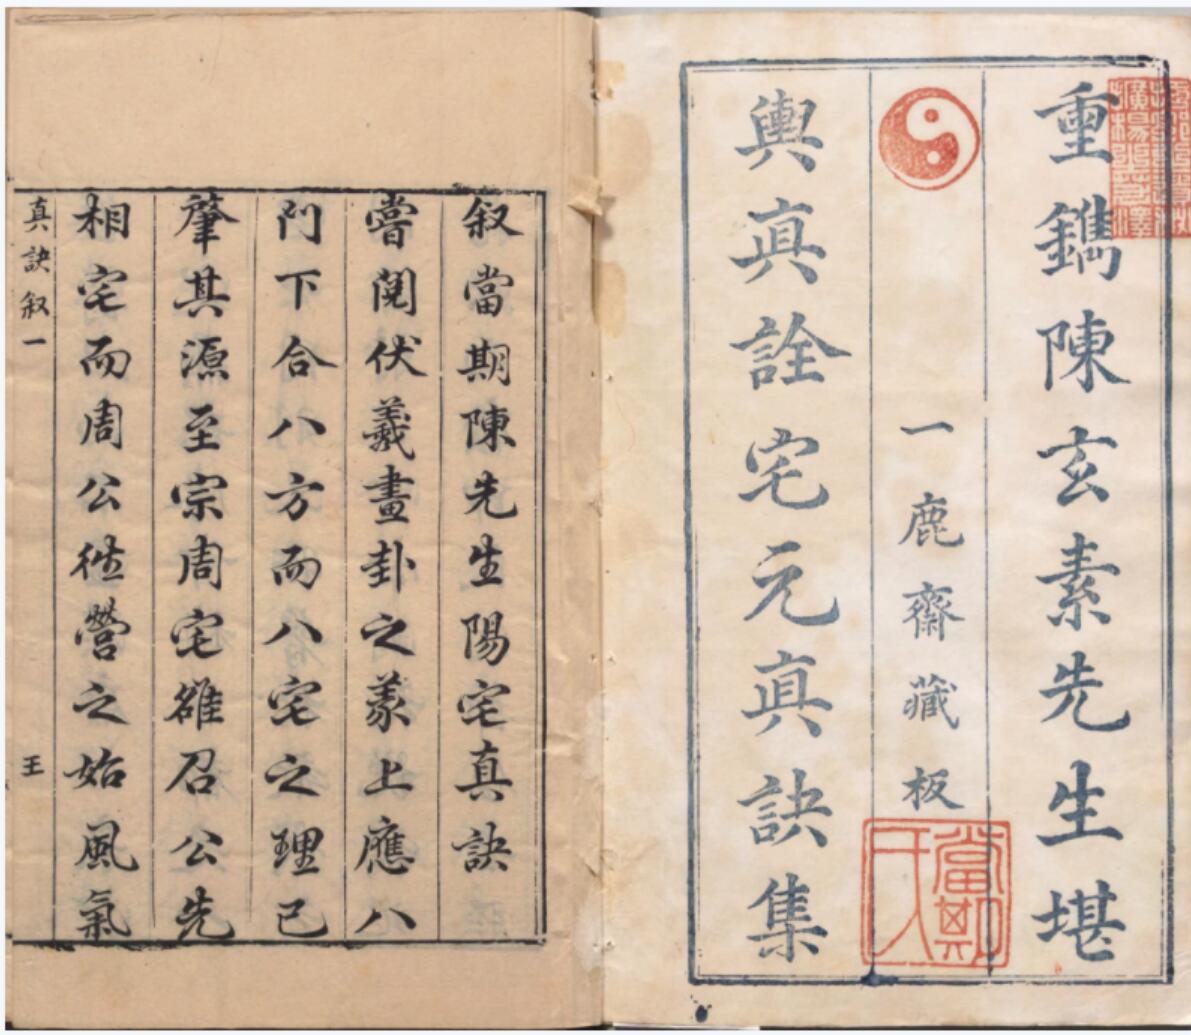 重鐫陳玄素先生堪
一鹿齋藏板
輿眞詮宅元眞訣集
叙當期陳先生陽宅真訣
嘗閱伏羲畫卦之象上應八
門下合八方而八宅之理已
肇其源至宗周宅雒召公先
相宅而周公徃營之始風氣
真訣叙一
王